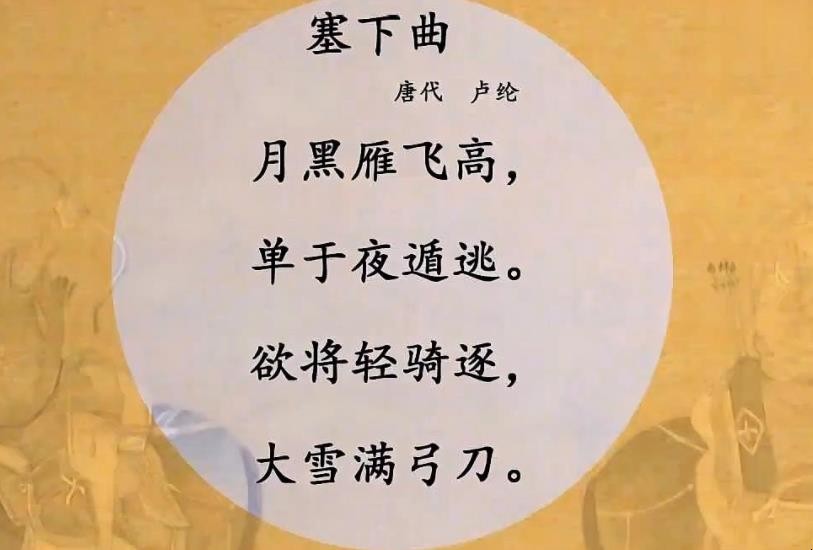 塞下曲
唐代 卢纶
月黑雁飞高，
单于夜遁逃。
欲将轻骑逐，
大雪满弓刀。